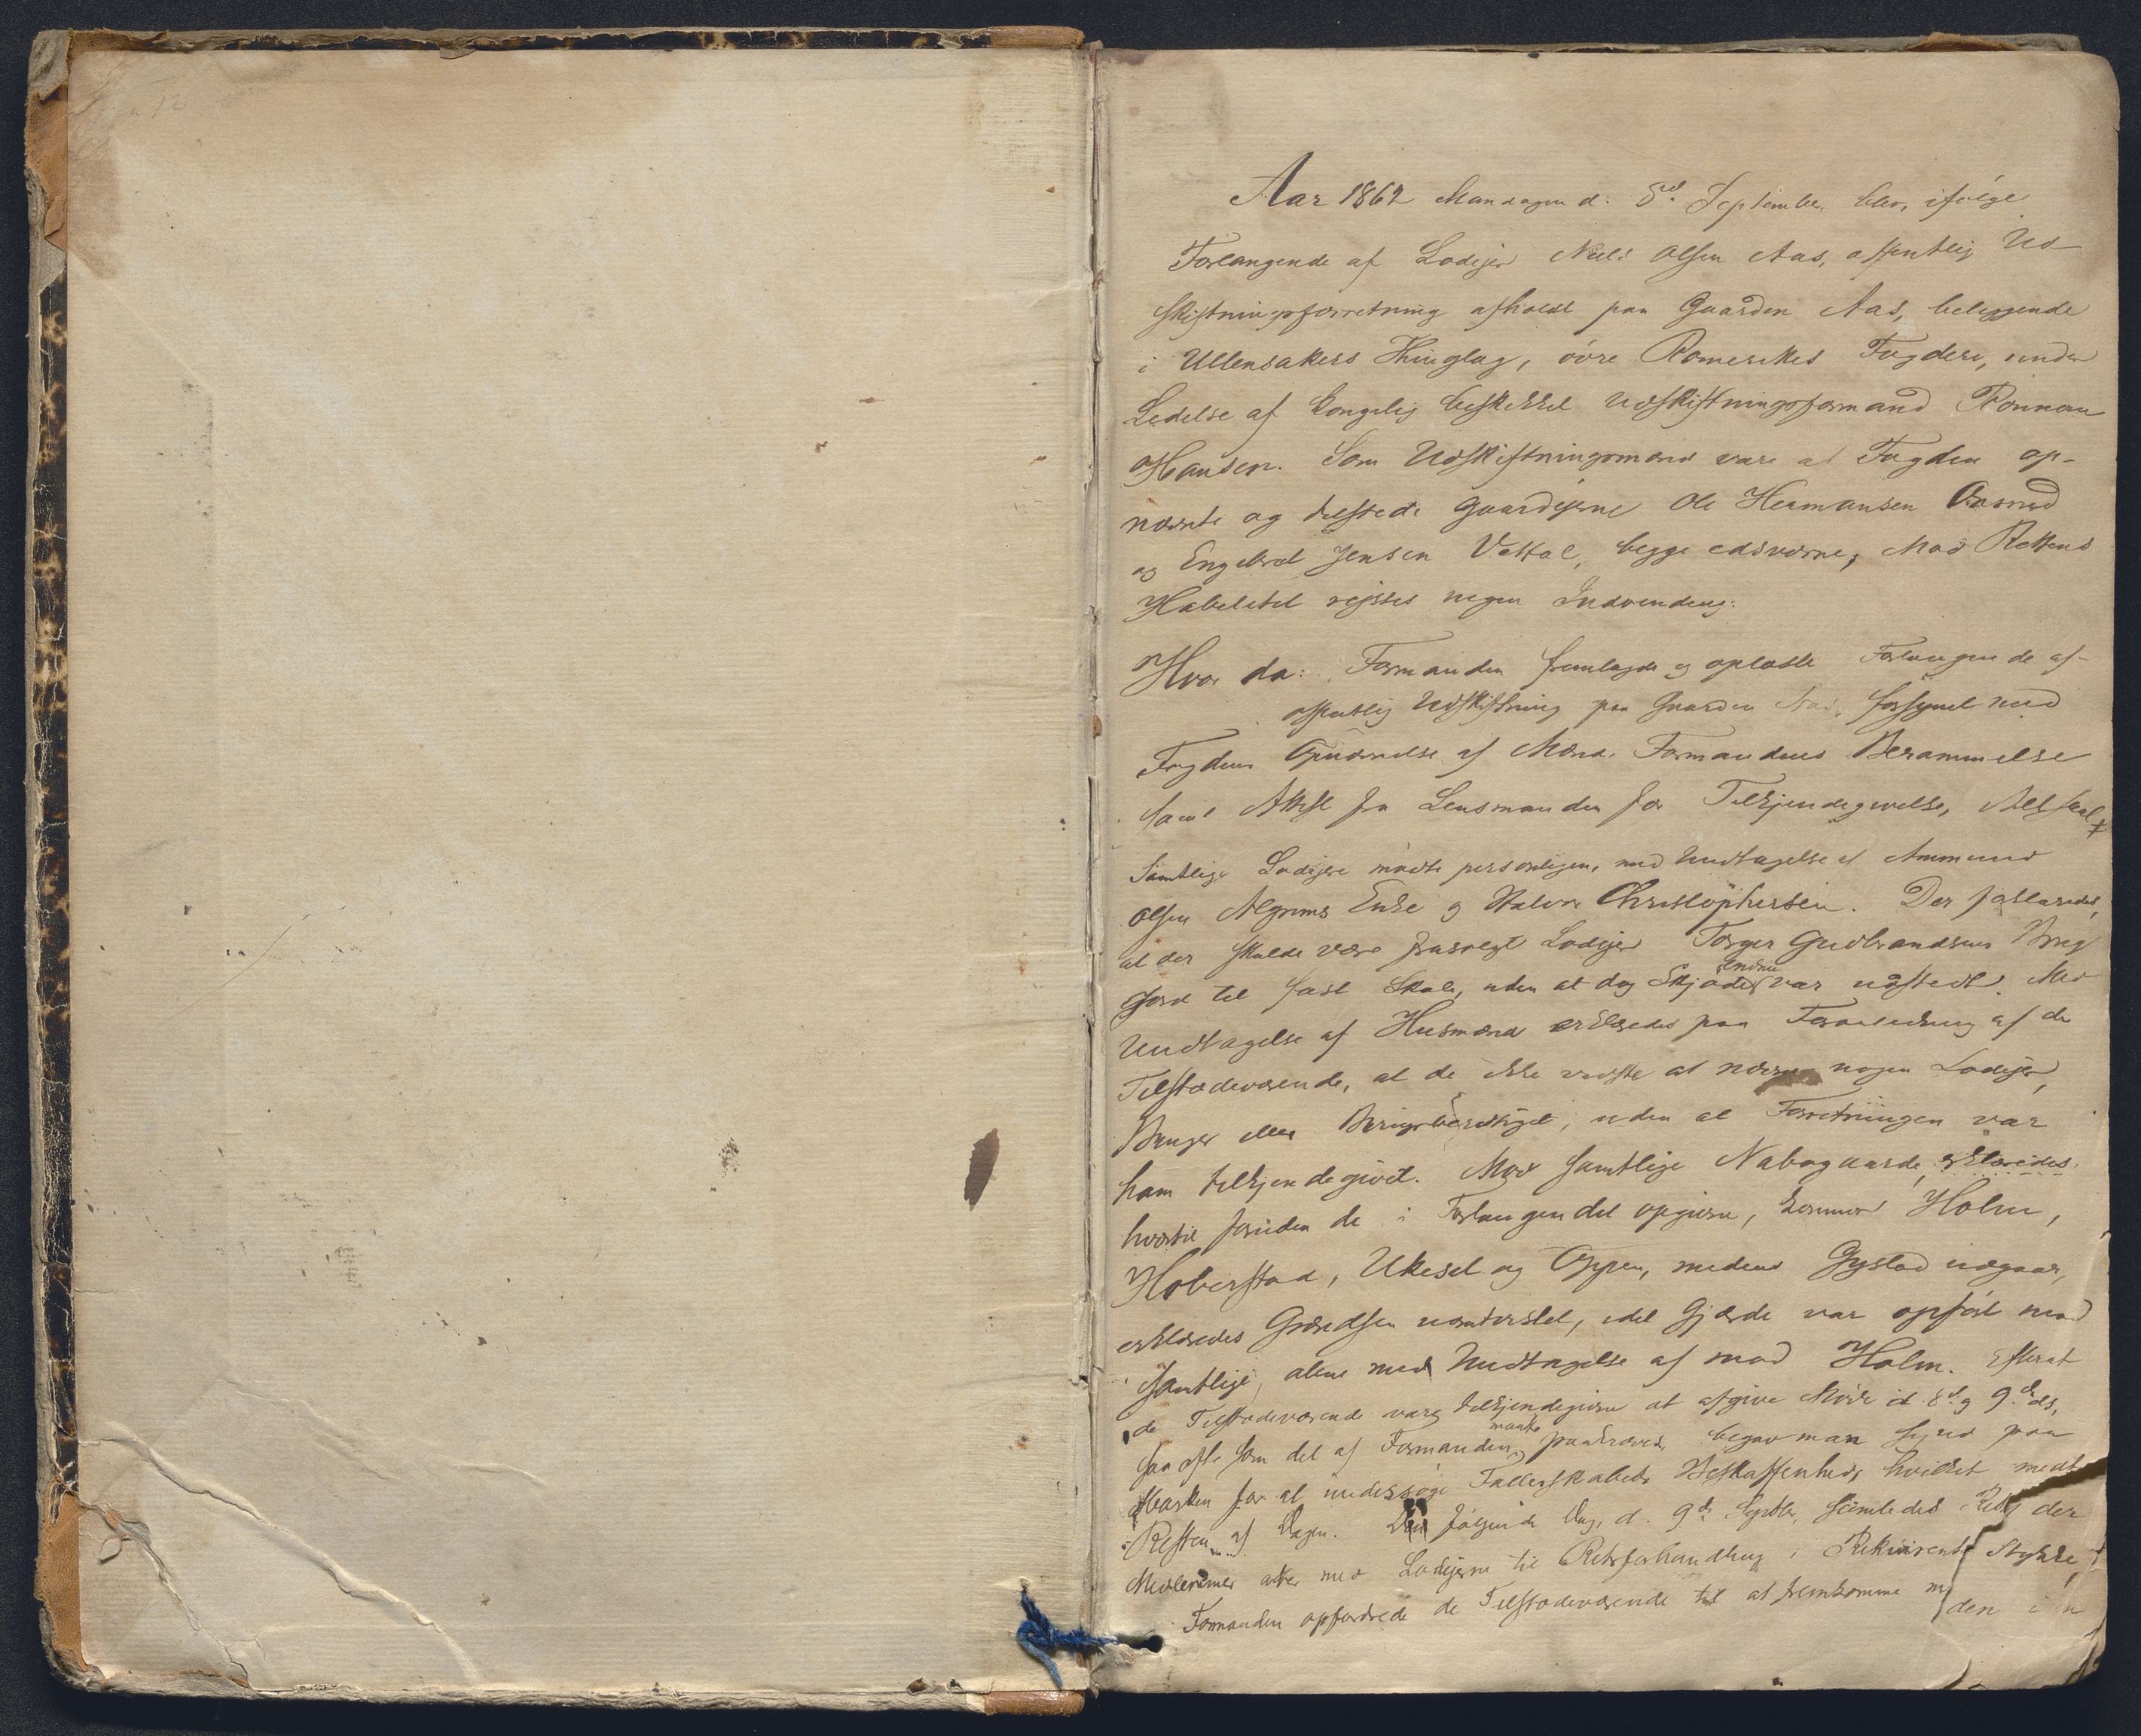 Aar 1862 Mandagen d: 8de September blev, ifølge
Forlangende af Lodejer Niels Olsen Aas, offentlig Ud-
skiftningsforretning afholdt paa Gaarden Aas, beliggende
i Ullensakers Thinglag, övre Romerikes Fogderi, under
Ledelse af kongelig beskikket Udskiftningsformand
Hansen. Som Udskiftningsmænd vare af Fogden op-
nævnte og tilstede Gaardejerne Ole Hermansen
og Engebret Jensen Vestal, begge edsvorne, Mod Rettens
Habilitet rejstes ingen Indvending.
Hvor da: Formanden fremlagde og oplæste Forlangende af
offentlig Udskiftning paa Gaarden Aas, forsynet med
Fogdens Opnævnelse af Mænd, Formandens Berammelse
samt Attest fra Lensmanden for Tilkjendegivelse,
Samtlige Lodejere mödte personligen, med Undtagelse af Ammund
Olsen Algrims Enke og Halvor Christophersen. Der forklaredes,
at der skulde være frasolgt Lodejer Torger Gudbrandsens
Jord til fast Skole, uden at dog Skjödet endnu var udstedt. Med
Undtagelse af Husmænd erklæredes paa Foranledning af de
Tilstedeværende, at de ikke vidste at nævne nogen Lodejer,
Bruger eller Brugsberettiget, uden at Forretningen var
ham tilkjendegivet. Mod samtlige Nabogaarde, erklæredes,
hvortil foruden de i Forlangendet opgivne, kommer Holm,
Hoberstad, Ukesel og Oppen, medens Gystad udgaar,
erklæredes Grændsen uomtvistet, idet Gjærde var opfört mod
samtlige, alene med Undtagelse af mod Holm. Efterat
de Tilstedeværende vare tilkjendegivne at afgive Möde d. 8de og 9de ds,
saa ofte som det af Formanden maatte paakræves, begav man sig ud paa
Marken for at undersöge Fællesskabets Beskaffenhed, hvilket medtog
Resten af Dagen. Den fölgende Dag, d. 9de Septbr, samledes Rettens
Medlemmer atter med Lodejerne til Retsforhandling i Rekvirentens Stykke,
Formanden opfordrede de Tilstedeværende til at fremkomme